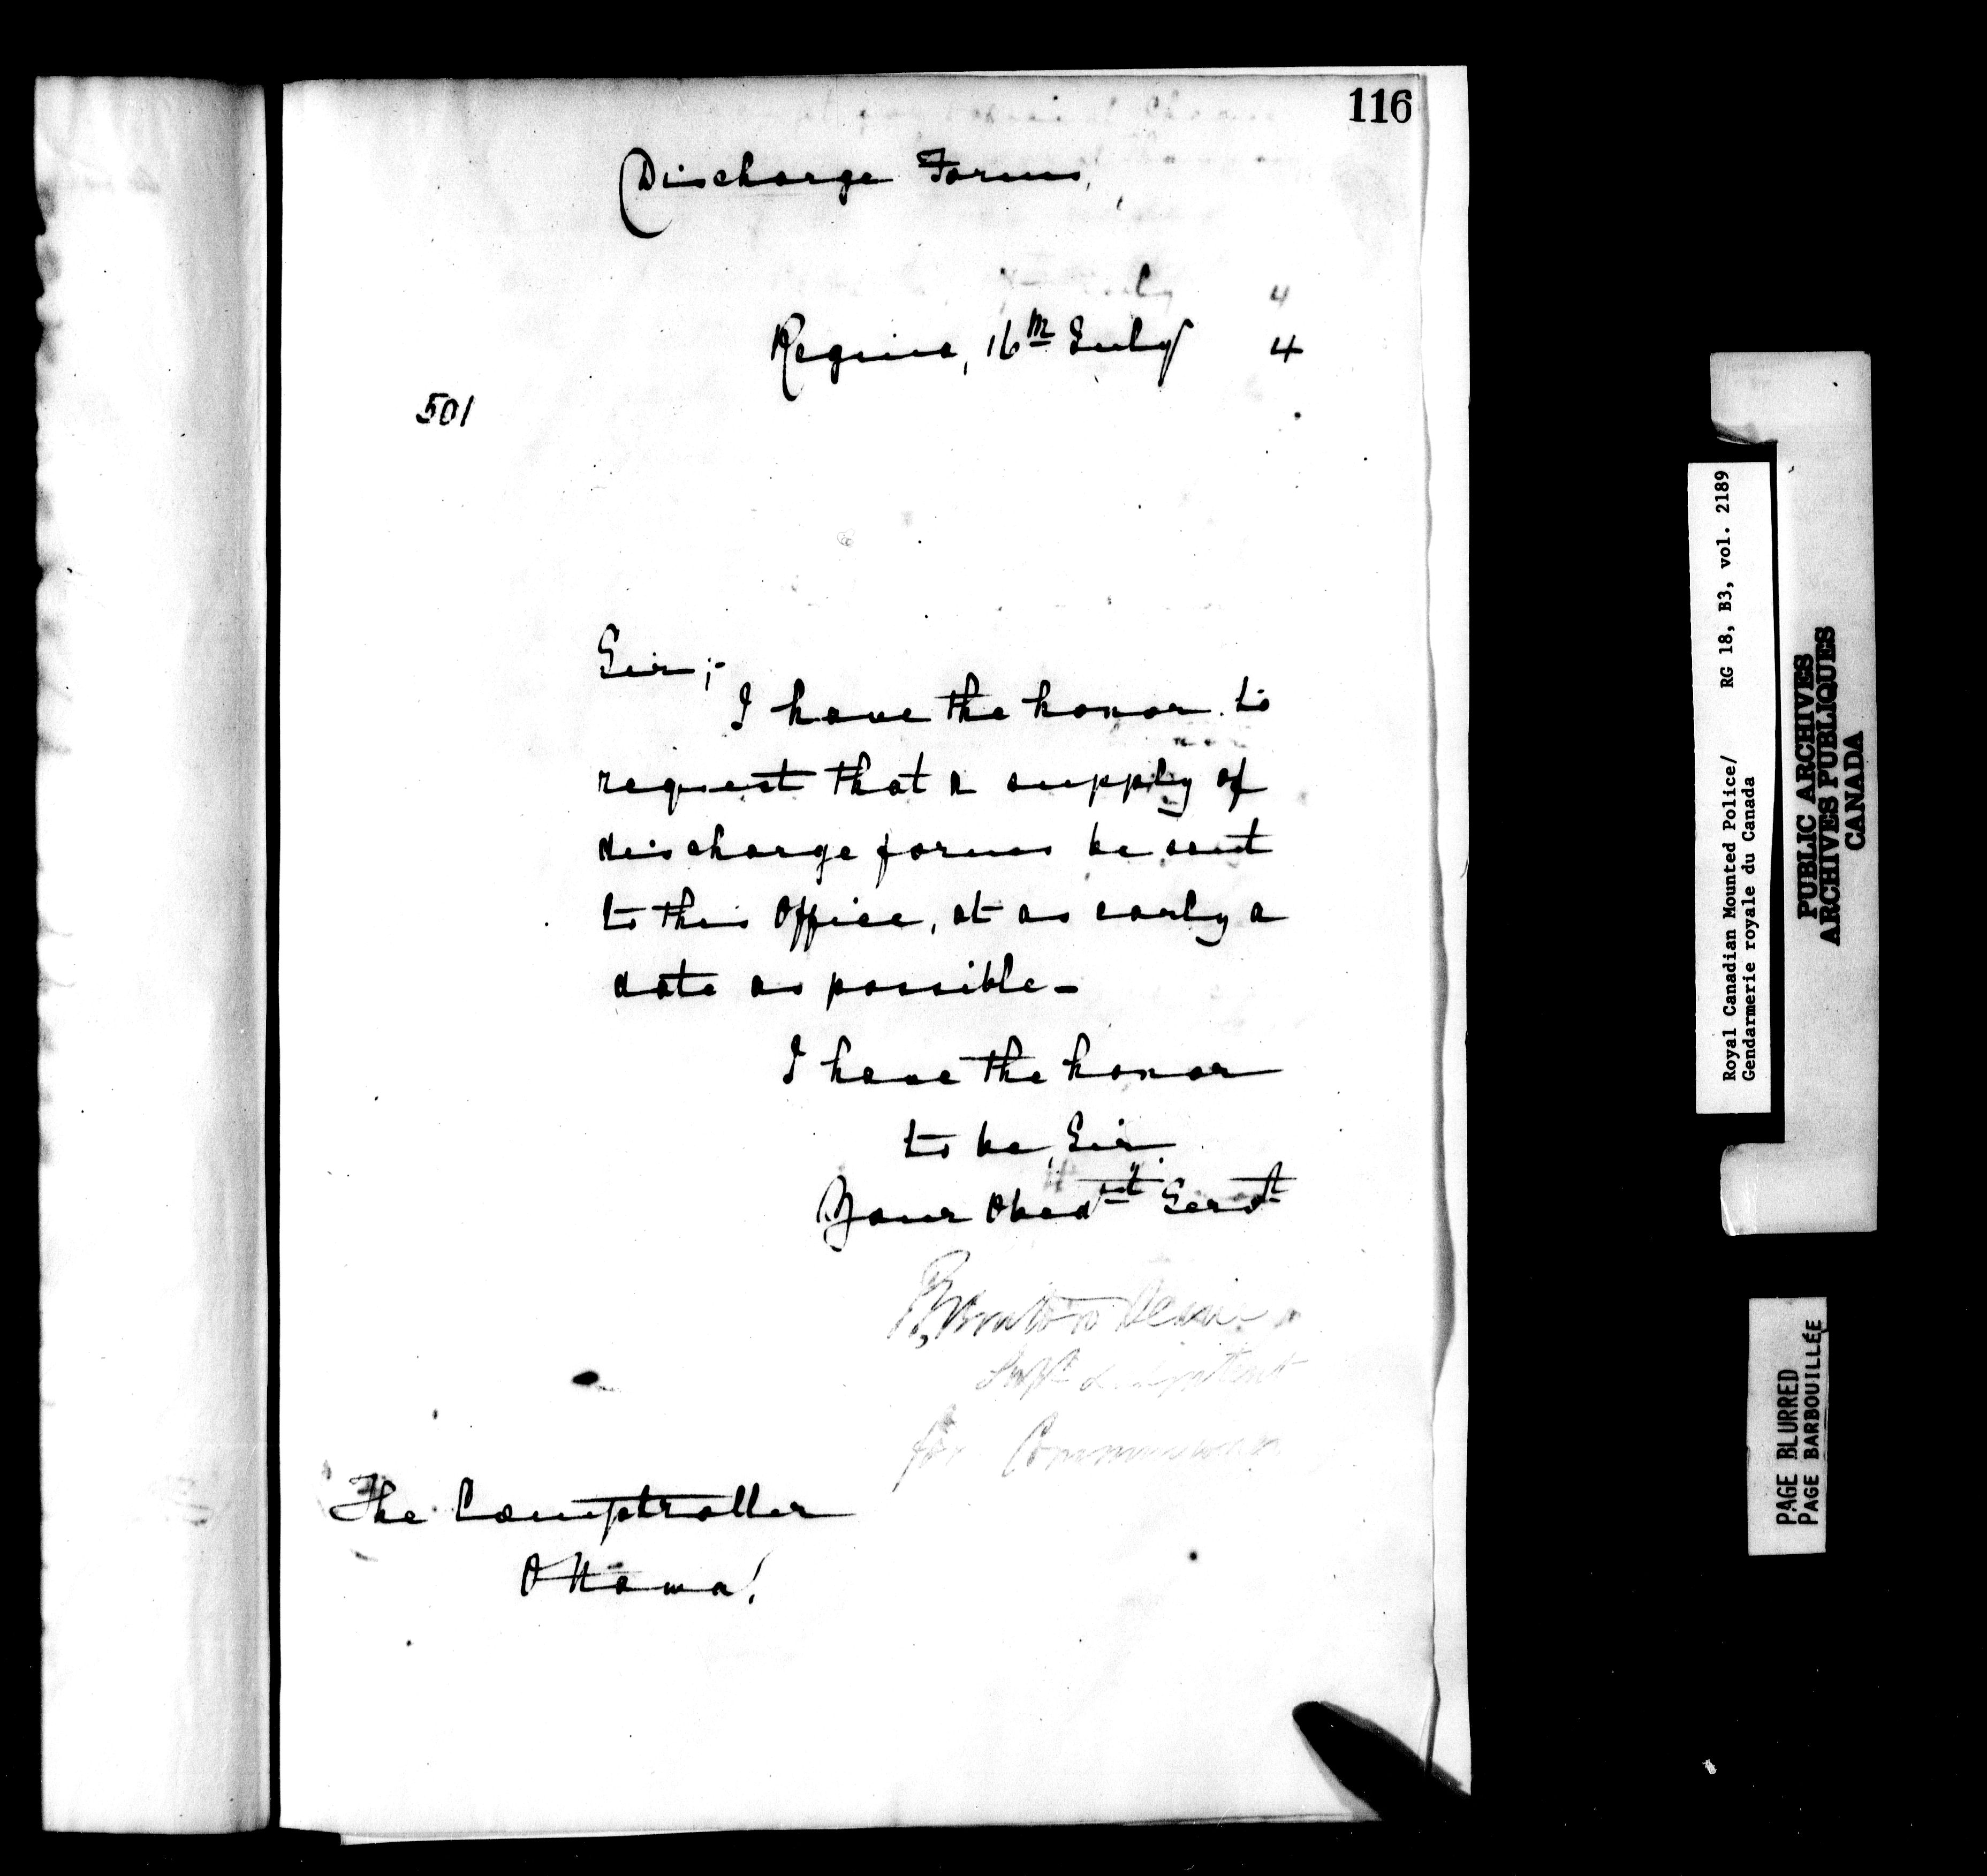 116
Discharge Forms,
Regina, 16th July 4
501
Sir;-
I have the honor to
request that a supply of
discharge forms be sent
to this Office, at as early a
date as possible-
I have the honor
to be, Sir
Your Obedt Servt
Burton Deane
Supt
for Commissioner
The Comptroller
Ottawa.
Royal Canadian Mounted Police/ RG 18, B3, vol. 2189
Gendarmerie royale du Canada
PUBLIC ARCHIVES
ARCHIVES PUBLIQUES
CANADA
PAGE BLURRED
PAGE BARBOUILLÉE